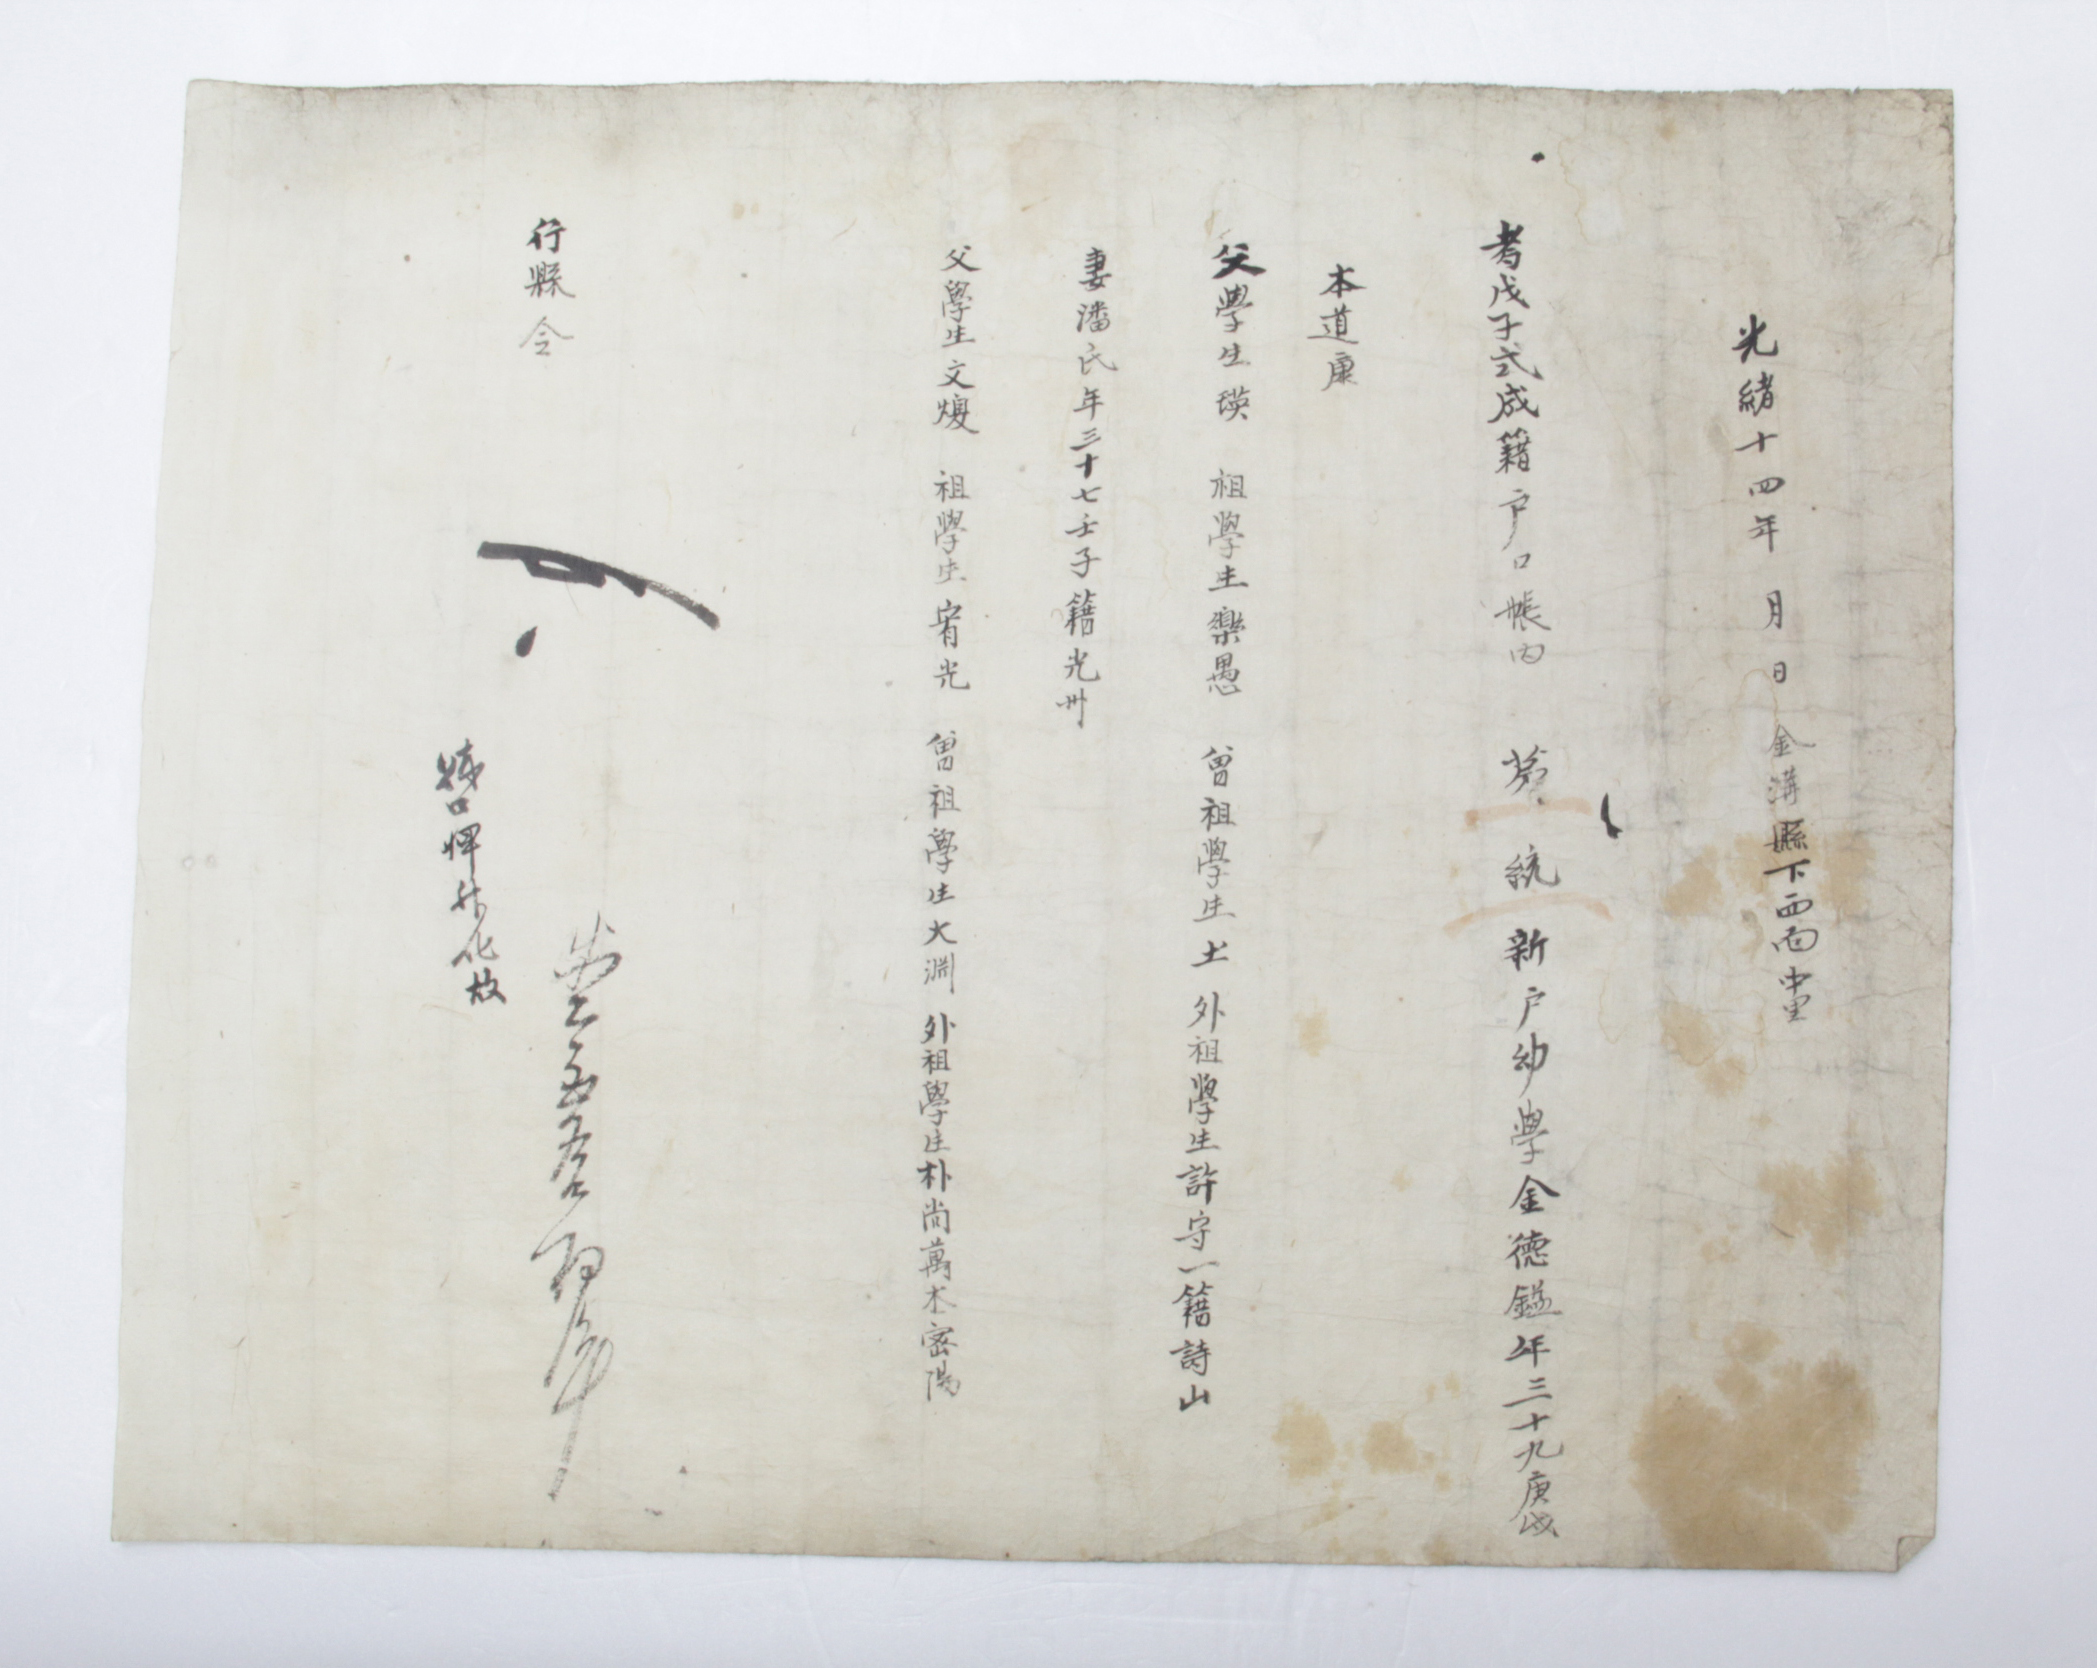 光緒十四年 月 日 金溝縣下西面中里
考戊子式成籍戶口帳內 第 統 新戶幼學金德鎰年三十九庚戌
本道康
父學生瑛 祖學生樂愚 曾祖學生土 外祖學生許守一籍詩山
妻潘氏年三十七壬子籍光州
父學生文煥 祖學生宥光 曾祖學生大淵 外祖學生朴尚萬本密陽
行縣令